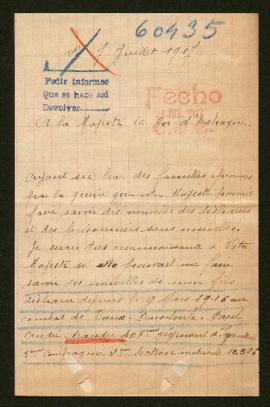 60435
7 Juillet 1917
Pedir informes
Que se hace así
Devolver
Fecho
A la Majesté le Roi d'Espagne.
Ayant su par des familles éprouvées
par la guerre que votre Majesté pouvait
faire savoir des nouvelles des disparus
et des prisonniers sans nouvelles.
Je serais très reconnaissante à Votre
Majesté si elle pouvait me faire
savoir des nouvelles de mon fils
disparu depuis le 9 Mars 1916 au
combat de Vaux
408ème régiment d'Infanterie
5ème compagnie 2ème section matricule